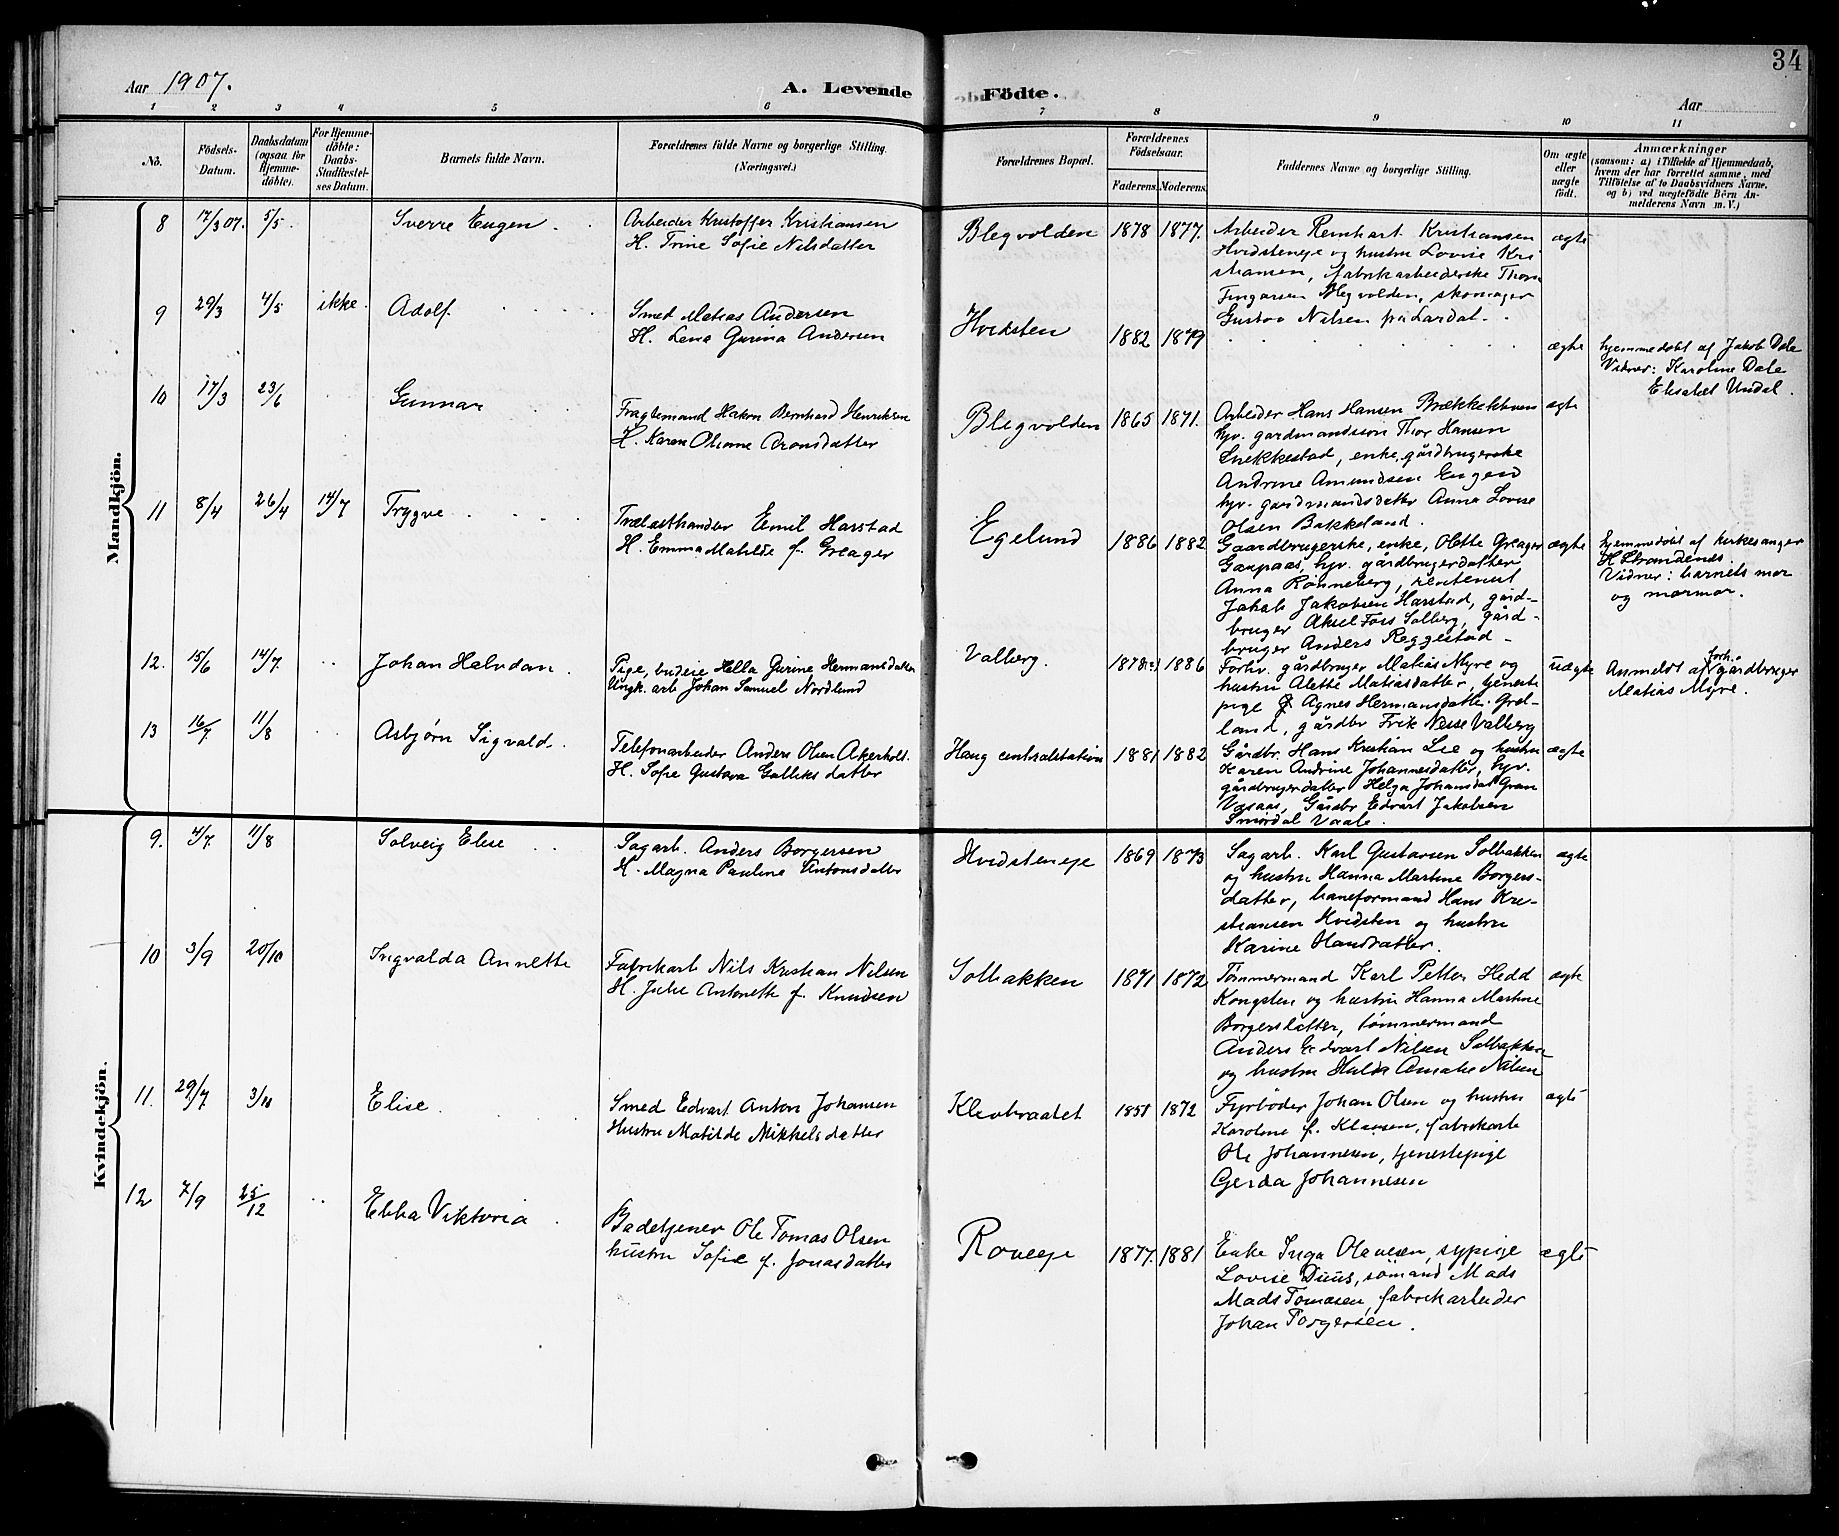 34
Aar 1907.
A. Levende Födte.
Aar
1 2 3 4 5 6 7 8 9 10 11
No.
Födsels-Datum.
Daabsdatum (ogsaa for Hjemme-döbte).
For Hjemme-döbte: Daabs-Stadfæstel-ses Datum.
Barnets fulde Navn.
Forældrenes fulde Navne og borgerlige Stilling.
(Næringsvei.)
Forældrenes Bopæl.
Forældrenes Födselsaar.
Faderens. Moderens.
Faddernes Navne og borgerlige Stilling.
Om ægte eller uægte födt.
Anmærkninger
(saasom: a) i Tilfælde af Hjemmedaab,
hvem der har forrettet samme, med
Tilföielse af to Daabsvidners Navne,
og b) ved uægtefödte Börn An-
melderens Navn m. V.)
Mandkjön.
8 17/3 07. 5/5 Sverre Eugen
Arbeider Kristoffer Kristiansen
H. Trine Sofie Nilsdatter
Blegvolden 1878 1877.
Arbeider Reinhart Kristiansen
Hvidsteneje og hustru Lovise Kri
stiansen, fabrikarbeiderske Thora
Blegvolden, skomager
Gustav Nilsen fra Lardal.
ægte
9 29/3 4/5 ikke. Adolf
Smed Matias Andersen
H. Lena Gurina Andersen
Hvidsten 1882 1879
ægte
hjemmedøbt af Jakob Dale
Vidner: Karoline Dale
Elisabet Undal.
10 17/3 23/6 Gunnar
Fragtemand Hakon Bernhard Henriksen
H. Karen Oliane Aronsdatter
Blegvolden 1865 1871.
Arbeider Hans Hansen
hjv. gardmandssøn Thor Hansen
Snekkestad, enke, gårdbrugerske
Andrine Amundsen Engen
hjv. gardmandsdatter Anna Lovise
Olsen Bakkeland.
ægte
11 8/4 26/4 14/7 Trygve
Trælasthandler Emil Harstad
H. Emma Matilde f. Greager
Egelund 1886 1882
Gaardbrugerske, enke, Olette Greager
Gaupaas, hjv. gårdbrugerdatter
Anna Rønneberg, rentenist
Jakob Jakobsen Harstad, gård-
bruger Aksel Foss Solberg, gård-
bruger Anders Reggestad
ægte
hjemmedøbt af kirkesanger
H Strømdenes.
Vidner: barnets mor
og mormor.
12. 15/6 14/7 Johan Halvdan
Pige, budeie Hella Gurine Hermansdatter
Ungk. arb Johan Samuel Nordlund
Valberg. 1878 1886
Forhv. gårdbruger Matias Myre og
hustru Alette Matiasdatter, tjeneste
pige Agnes Hermansdatter Grøt-
land, gårdbr Frik Nesse Valberg
uægte
Anmeldt af forh. gårdbruger
Matias Myre.
13 16/7 11/8 Asbjørn Sigvald
Telefonarbeider Anders Olsen Akerholt
H. Sofie Gustava Gulliksdatter
Haug centralstation 1881 1882
Gårdbr. Hans Kristian Lie og hustru
Karen Andrine Johannesdatter, hjv.
gårdbrugerdatter Helga Johansdat Gran
Vasaas, Gårdbr Edvart Jakobsen
Smørdal Vaale.
ægte
Kvindekjön.
9. 4/7 11/8 Solveig Elise
Sagarb. Anders Borgersen
H. Magna Pauline Antonsdatter
Hvidsteneje 1869 1873
Sagarb. Karl Gustavsen Solbakken
og hustru Hanna Martine Borgers-
datter, baneformand Hans Kri-
stiansen Hvidsten og hustru
Karine Hansdatter.
ægte
10 3/9 20/10 Ingvalda Annette
Fabrikarb Nils Kristian Nilsen
H. Julie Antonette f. Knudsen
Solbakken 1871 1872
Tømmermand Karl Petter Hedd
Kongsten og hustru Hanna Martine
Borgersdatter, tømmermand
Anders Edvart Nilsen Solbakken
og hustru Hulda Amalie Nilsen
ægte
11. 29/7 3/11 Elise
Smed Edvart Anton Johansen
Hustru Matilde Mikkelsdatter
Klevbraatet 1851 1872
Fyrbøder Johan Olsen og hustru
Karoline f. Klausen, fabrikarb
Ole Johannesen, tjenestepige
Gerda Johannesen
ægte
12 7/9 25/12 Ebba Viktoria
Badetjener Ole Tomas Olsen
hustru Sofie f. Jonasdatter
Roveeje 1877. 1881
Enke Inga Olavesen, sypige
Lovise Duus, sømand Mads
Mads Tomasen, fabrikarbeider
Johan Torgersen.
ægte